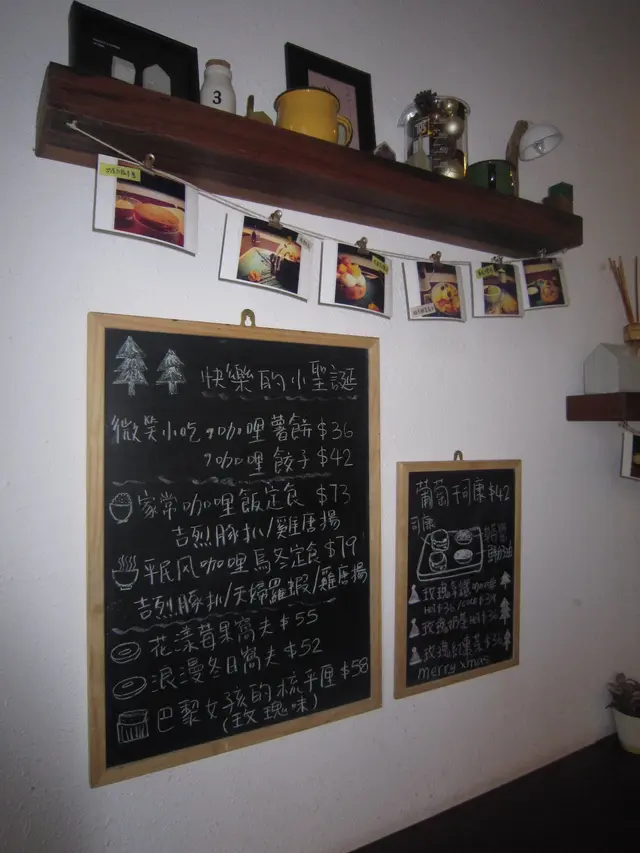 3
快樂的小聖誕
微笑小吃 咖哩薯餅 $36
咖哩餃子 $42
家常咖哩飯定食 $73
吉烈豚扒/雞唐揚
平民风咖哩烏冬定食 $79
吉烈豚扒/天婦羅蝦/雞唐揚
花漾莓果窩夫 $55
浪漫冬日窩夫 $52
巴黎女孩的梳乎厘 $58
(玫瑰味)
葡萄干司康 $42
司康
玫瑰
Hot $36
玫瑰奶茶 Hot $36
玫瑰紅棗茶 $36
merry xmas